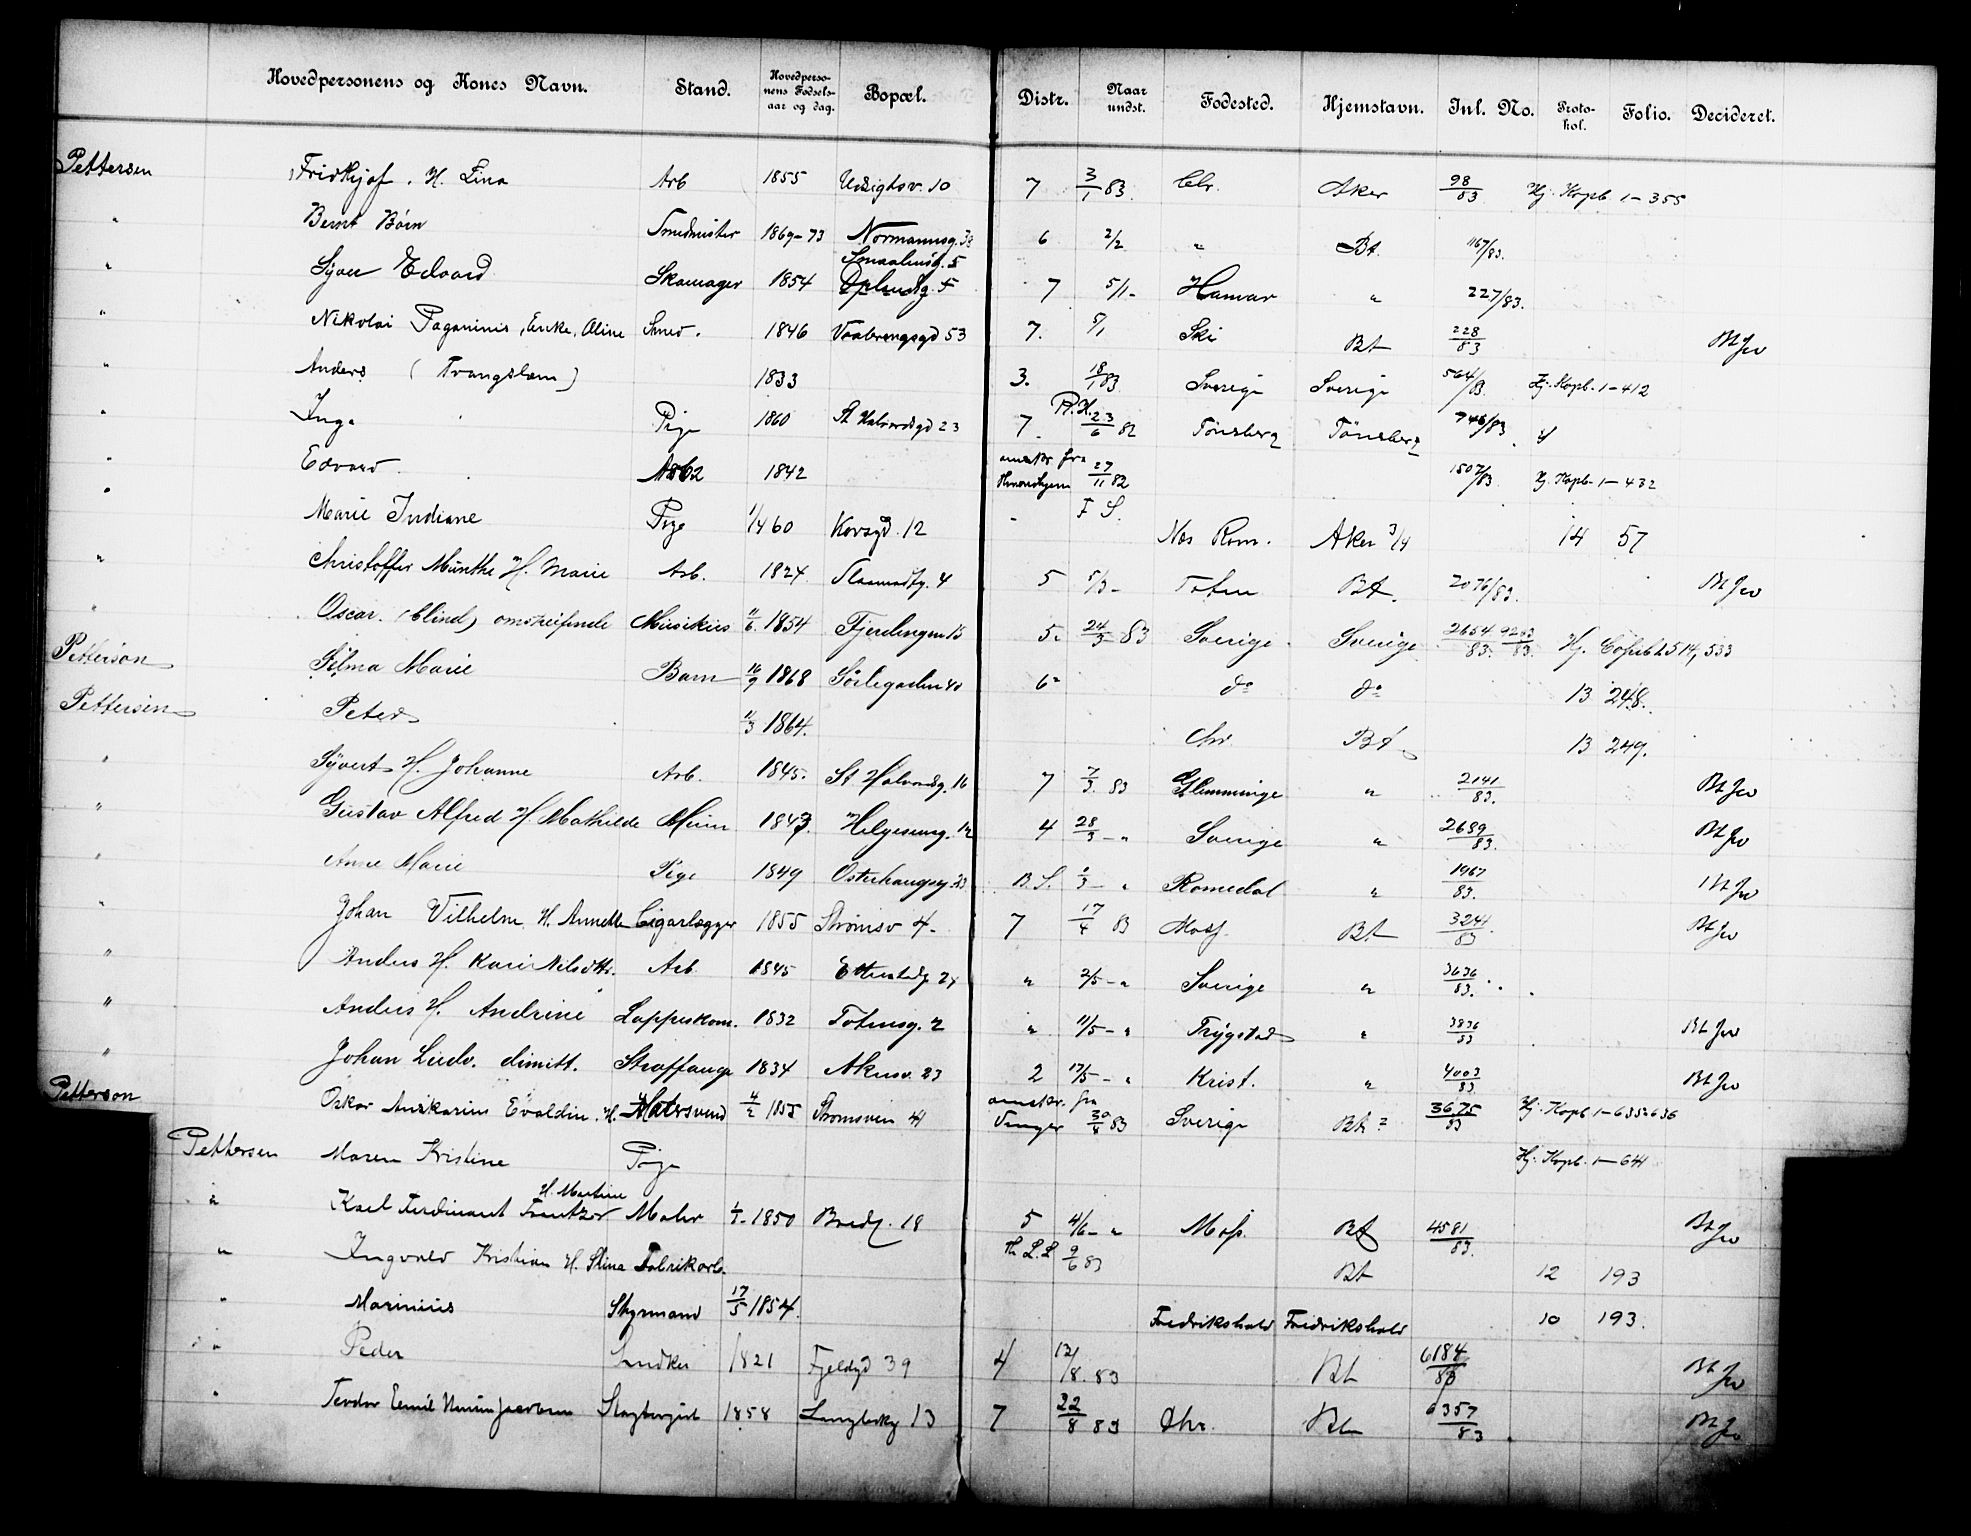 Hovedpersonens og Kones Navn. Stand. Hovedpersonens Fødselsaar og dag. Bopæl. Distr. Naar undst. Fødested. Hjemstavn. Inl. No. Protokol. Folio. Decideret.
Pettersen Fridthjof. H. Lina Arb 1855 Udsigtsv. 10 7 3/1 83. Chr. Aker 98/83 Hj. Kopb. 1-355
" Bernt Børn Smedmester 1869-73 Normannsg. 6 2/2 " Bt. 1167/83.
Smaalensg. 5
" Syver Edvard Skomager 1854 Oplandsg. 5 7 5/1- Hamar " 227/83.
" Nikolai Paganinis, Enke, Oline Smed. 1846 Vaalerengsgd 53 7. 5/1 Ski Bt 228/83 Bt Jw
" Anders (Tvangslem) 1833 3. 18/1 83 Sverige Sverige 564/83 Hj. Kopb. 1-412
" Inga Pige 1860 St Halvordsgd 23 7. R.H. 23/6 82 Tønsberg Tønsberg 746/83.
" Edvard. 1842 omskr. fra 27/11 82 1507/83. Hj. Kopb. 1-432
" Marie Indiane Pige 1/4 60 Korsgd. 12 - F S. Nes Rom. Aker 3/4 14 57
" Christoffer Munthe H. Marie Arb. 1824 4 5 5/3- Toten Bt. 2076/83. Bt Jw
" Oscar. (blind) omstreifende Musikus 11/6. 1854 Fjerdingen 15 5. 24/3- 83 Sverige. Sverige 2654/83. 9263/83. Hj. 514, 533
Petterson Hilma Marie Barn 16/9 1868 Sörligaden 40 6 do do 13 248.
Pettersen Peter 11/3 1864. Chr Bt 13 249.
" Syvert H. Johanne Arb. 1845. St Halvordsg. 16 7 7/3. 83 Glemminge " 2141/83. Bt Jw
" Gustav Alfred H. Mathilde Murer 1847. Helgesensg. 12 4 28/3- " Sverige " 2689/83. Bt Jw
" Anne Marie Pige 1849 Osterhausg. 23 B.S. 2/3- " Romedal " 1967/83. Bt Jw
" Johan Vilhelm H. Annette Cigarlægger 1855 Strømsv 4- 7 17/4 83 Moss. Bt 3241/83. Bt Jw
" Anders H. Kari Nilsdtr. Arb. 1845 Etterstadg 24 " 2/5- " Sverige " 3636/83.
" Anders H. Andrine Lappeskom. 1832 Totensg. 2 " 11/5- " Trygstad " 3836/83 Bt Jw
" Johan Ludv. dimitt. Straffange 1834 Akersv. 23 2 17/5- " Krist. " 4003/83 Bt Jw
Petterson Oskar Anskarius Evaldin. H. Malersvend 4/2 1855 Strømsveien 4 omskr. fra Vinger 30/4 83 Sverige Bt? 3675/83 Hj. Kopb 1-635&636
Pettersen Maren Kristine Pige Hj. Kopb. 1-641
H. Martine
" Karl Ferdinant Maler 1/7- 1850 Bredg. 18 5 4/6- " Moss. Bt 4581/83. Bt Jw
" Ingvald Kristian H. Stina Fabrikarb. Th L.L 9/6 83 Bt 12 193
" Marinius Styrmand 17/5 1854. Fredrikshald Fredrikshald 10 193.
" Peder Snedker 1821 Fjeldgd 39 4 12/8. 83 Bt 6184/83 Bt Jw
" Teodor Emil Slagtergut 1858 Langleikg 13 7 22/8 83 Chr. Bt 6357/83. Bt Jw